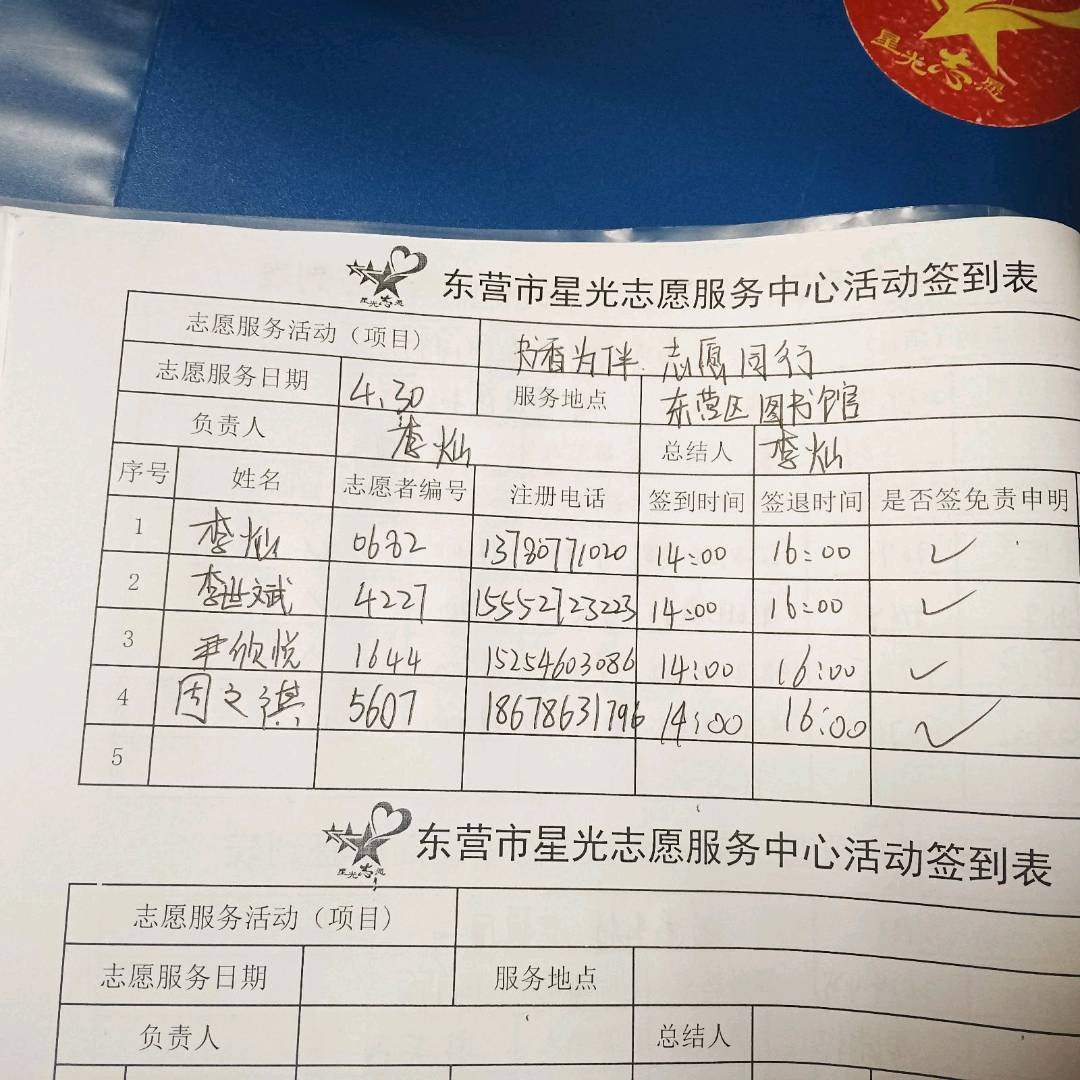 星光志愿
星光志愿
东营市星光志愿服务中心活动签到表
志愿服务活动（项目） 书香为伴 志愿同行
志愿服务日期 4.30 服务地点 东营区图书馆
负责人 李灿 总结人 李灿
序号 姓名 志愿者编号 注册电话 签到时间 签退时间 是否签免责申明
1 李灿 0682 13780771020 14:00 16:00 ✓
2 李世斌 4227 15552723223 14:00 16:00 ✓
3 尹欣悦 1644 15254603086 14:00 16:00 ✓
4 周之淇 5607 18678631796 14:00 16:00 ✓
5
星光志愿
东营市星光志愿服务中心活动签到表
志愿服务活动（项目）
志愿服务日期 服务地点
负责人 总结人